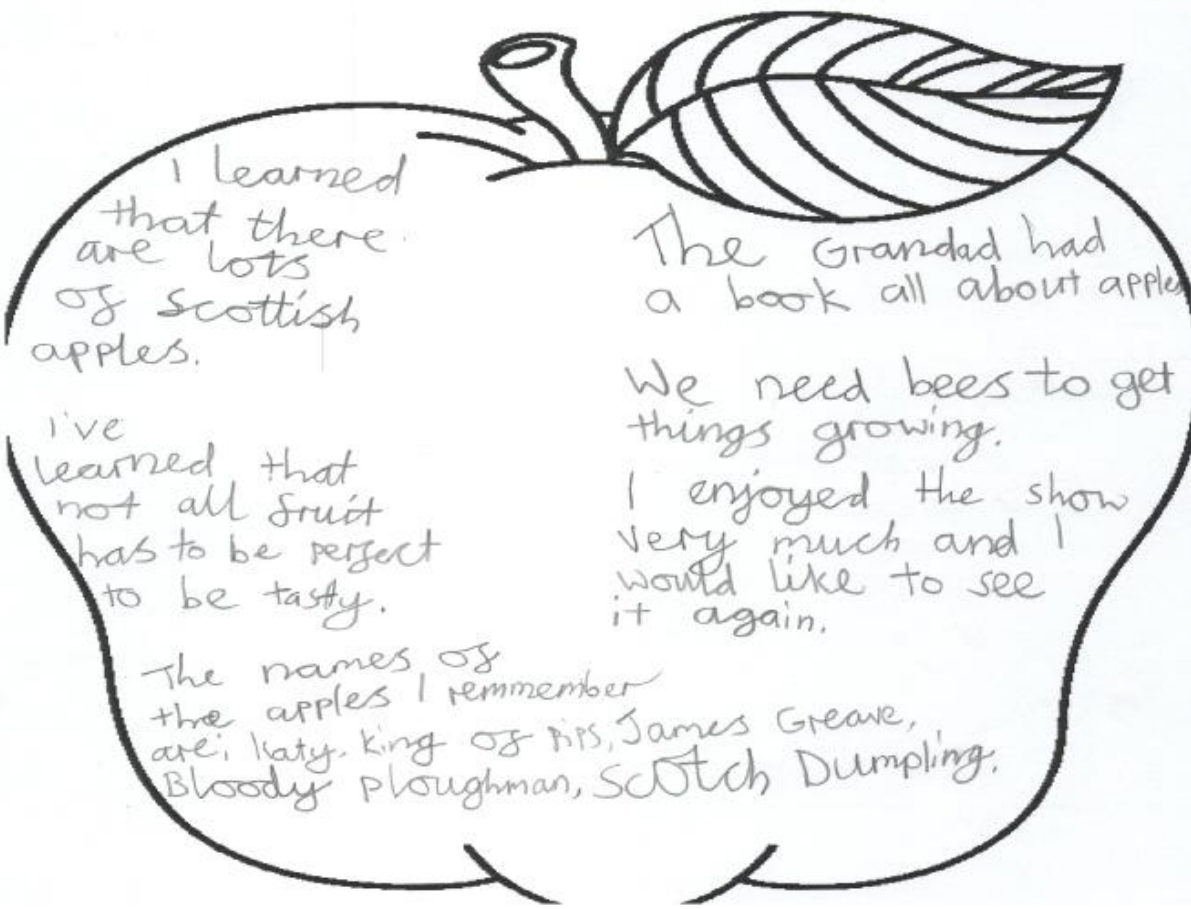 I learned
that there
are lots
of Scottish
apples.
I've
learned that
not all fruit
has to be perfect
to be tasty.
The Grandad had
a book all about apples
We need bees to get
things growing.
I enjoyed the show
very much and I
would like to see
it again.
The names of
the apples I remmember
are; Katy. King of Pips, James Greave,
Bloody Ploughman, Scotch Dumpling.